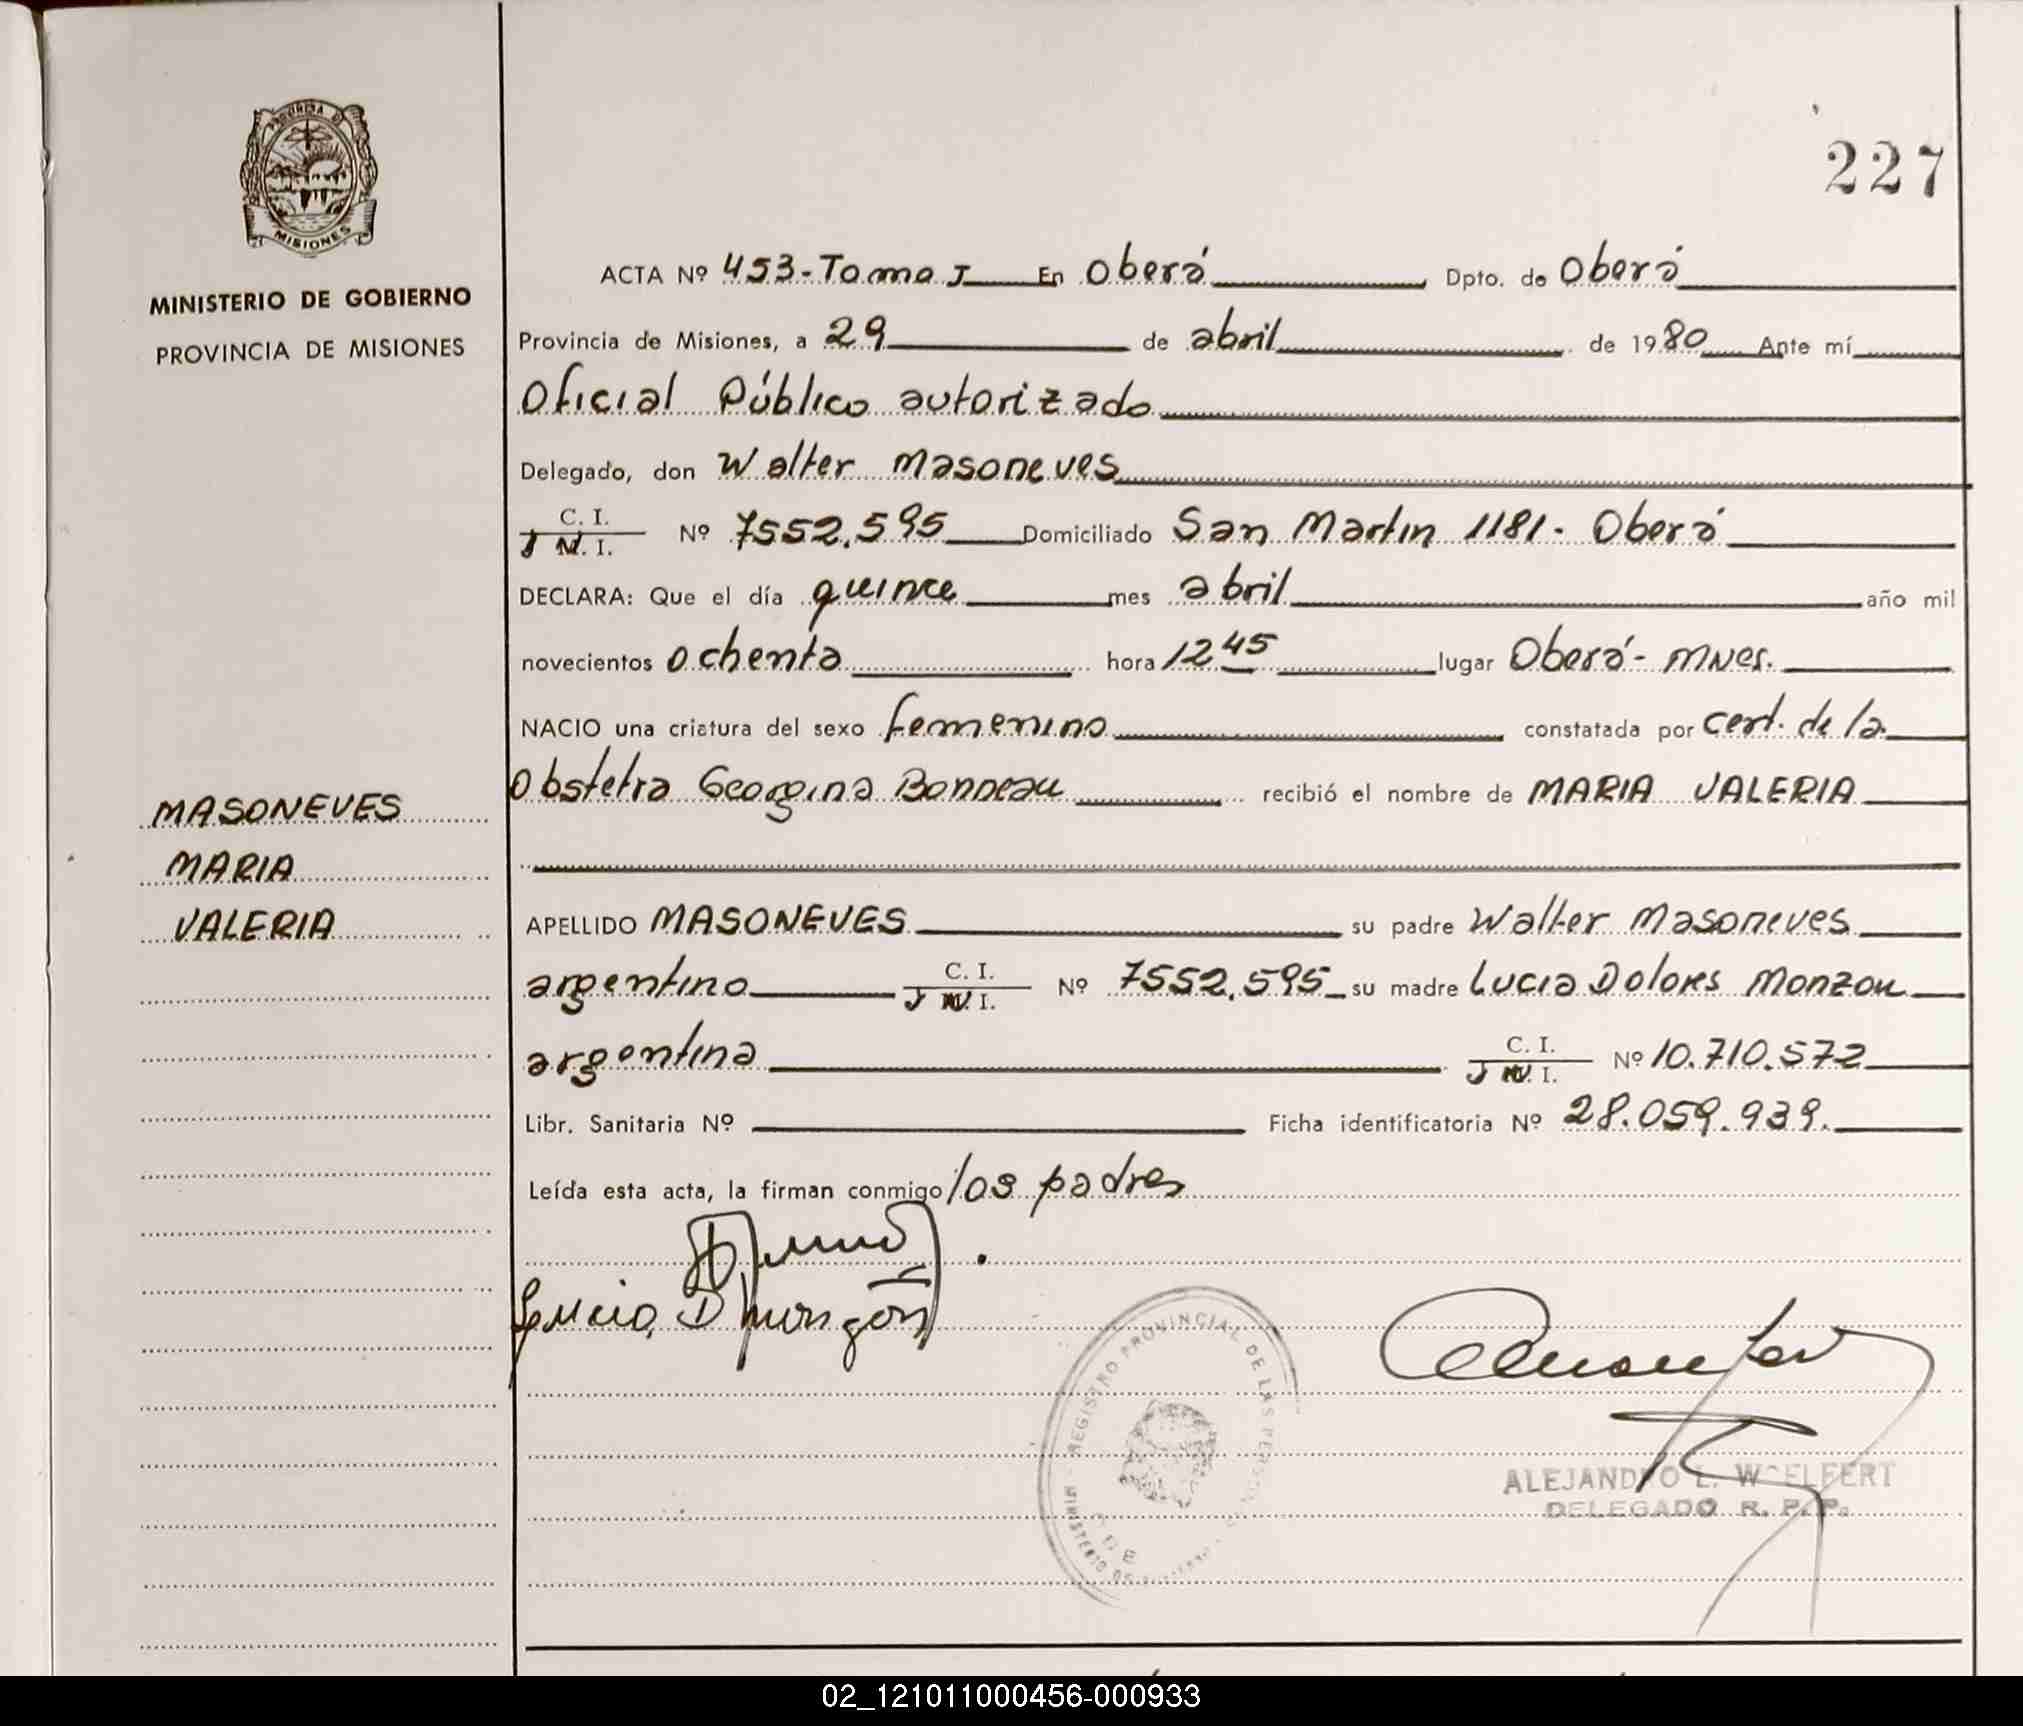 PROVINCIA DE
MISIONES
MINISTERIO DE GOBIERNO
PROVINCIA DE MISIONES
227
ACTA Nº 453-Tomo I En Oberá Dpto. de Oberá
Provincia de Misiones, a 29 de abril de 1980 Ante mí
Oficial Público autorizado
Delegado, don Walter Masoneves
C. I.
M. I. Nº 7552.595 Domiciliado San Martin 1181- Oberá
DECLARA: Que el día quince mes abril año mil
novecientos ochenta hora 12 45 lugar Oberá- Mnes.
NACIO una criatura del sexo femenino constatada por cert. de la
Obstetra Georgina Bonneau recibió el nombre de MARIA VALERIA
MASONEVES
MARIA
VALERIA
APELLIDO MASONEVES su padre Walter Masoneves
argentino C. I.
M. I. Nº 7552.595 su madre Lucia Dolores Monzon
argentina C. I.
M. I. Nº 10.710.572
Libr. Sanitaria Nº Ficha identificatoria Nº 28.059.939.
Leída esta acta, la firman conmigo los padres
Lucia D Monzón
REGISTRO PROVINCIAL DE LAS PERSONAS
MINISTERIO DE GOBIERNO
ALEJANDRO L. WOELFERT
DELEGADO R. P. P.
02_121011000456-000933